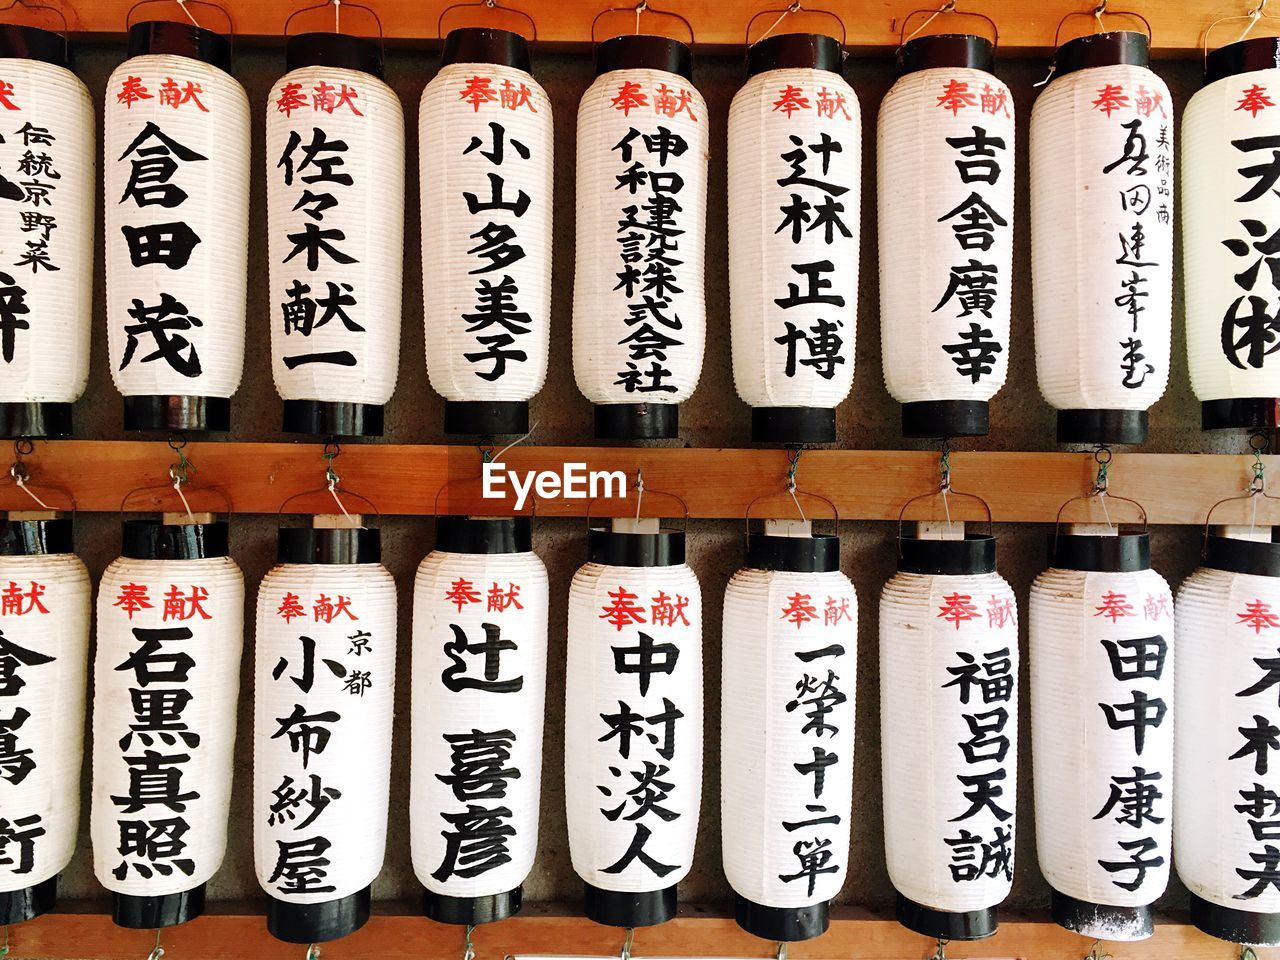 奉献 伝統京野菜
奉献 倉田 茂
奉献 佐々木献一
奉献 小山多美子
奉献 伸和建設株式会社
奉献 辻林正博
奉献 吉舎廣幸
奉献 美術品商 真田連峯堂
奉
EyeEm
献
奉献 石黒真照
奉献 京都 小布紗屋
奉献 辻 喜彦
奉献 中村淡人
奉献 一榮十二単
奉献 福呂天誠
奉献 田中康子
奉 木村哲夫